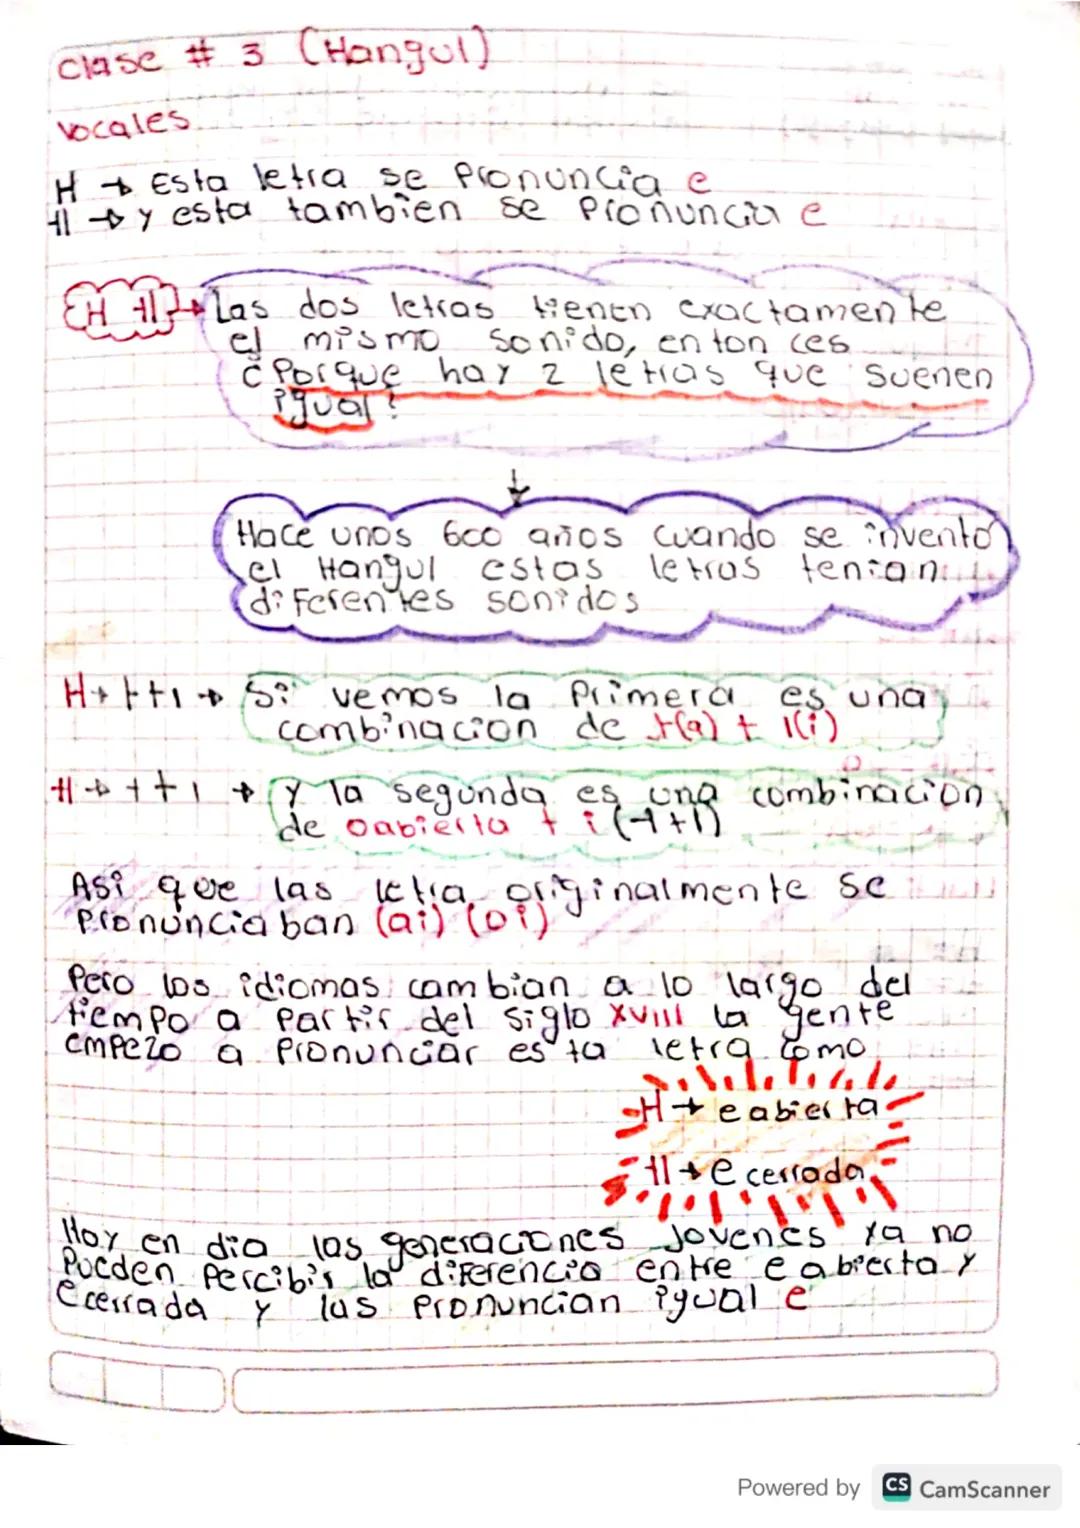 clase # 3 (Hangul)
vocales
ㅐ → Esta letra se pronuncia e
ㅔ → y esta tambien se pronuncia e
ㅐ ㅔ → Las dos letras tienen exactamente
el mismo sonido, entonces
¿Porque hay 2 letras que suenen
igual?
↓
Hace unos 600 años cuando se invento
el Hangul estas letras tenian
diferentes sonidos
ㅐ → ㅏ + ㅣ → Si vemos la primera es una
combinacion de ㅏ(a) + ㅣ(i)
ㅔ → ㅓ + ㅣ → y la segunda es una combinacion
de o abierta + i (ㅓ+ㅣ)
Asi que las letra originalmente se
pronunciaban (ai) (oi)
Pero los idiomas cambian a lo largo del
tiempo a partir del siglo XVIII la gente
empezo a pronunciar esta letra como
ㅐ → e abierta
ㅔ → e cerrada
Hoy en dia las generaciones jovenes ya no
pueden percibir la diferencia entre e abierta y
e cerrada y las pronuncian igual e
Powered by CS CamScanner